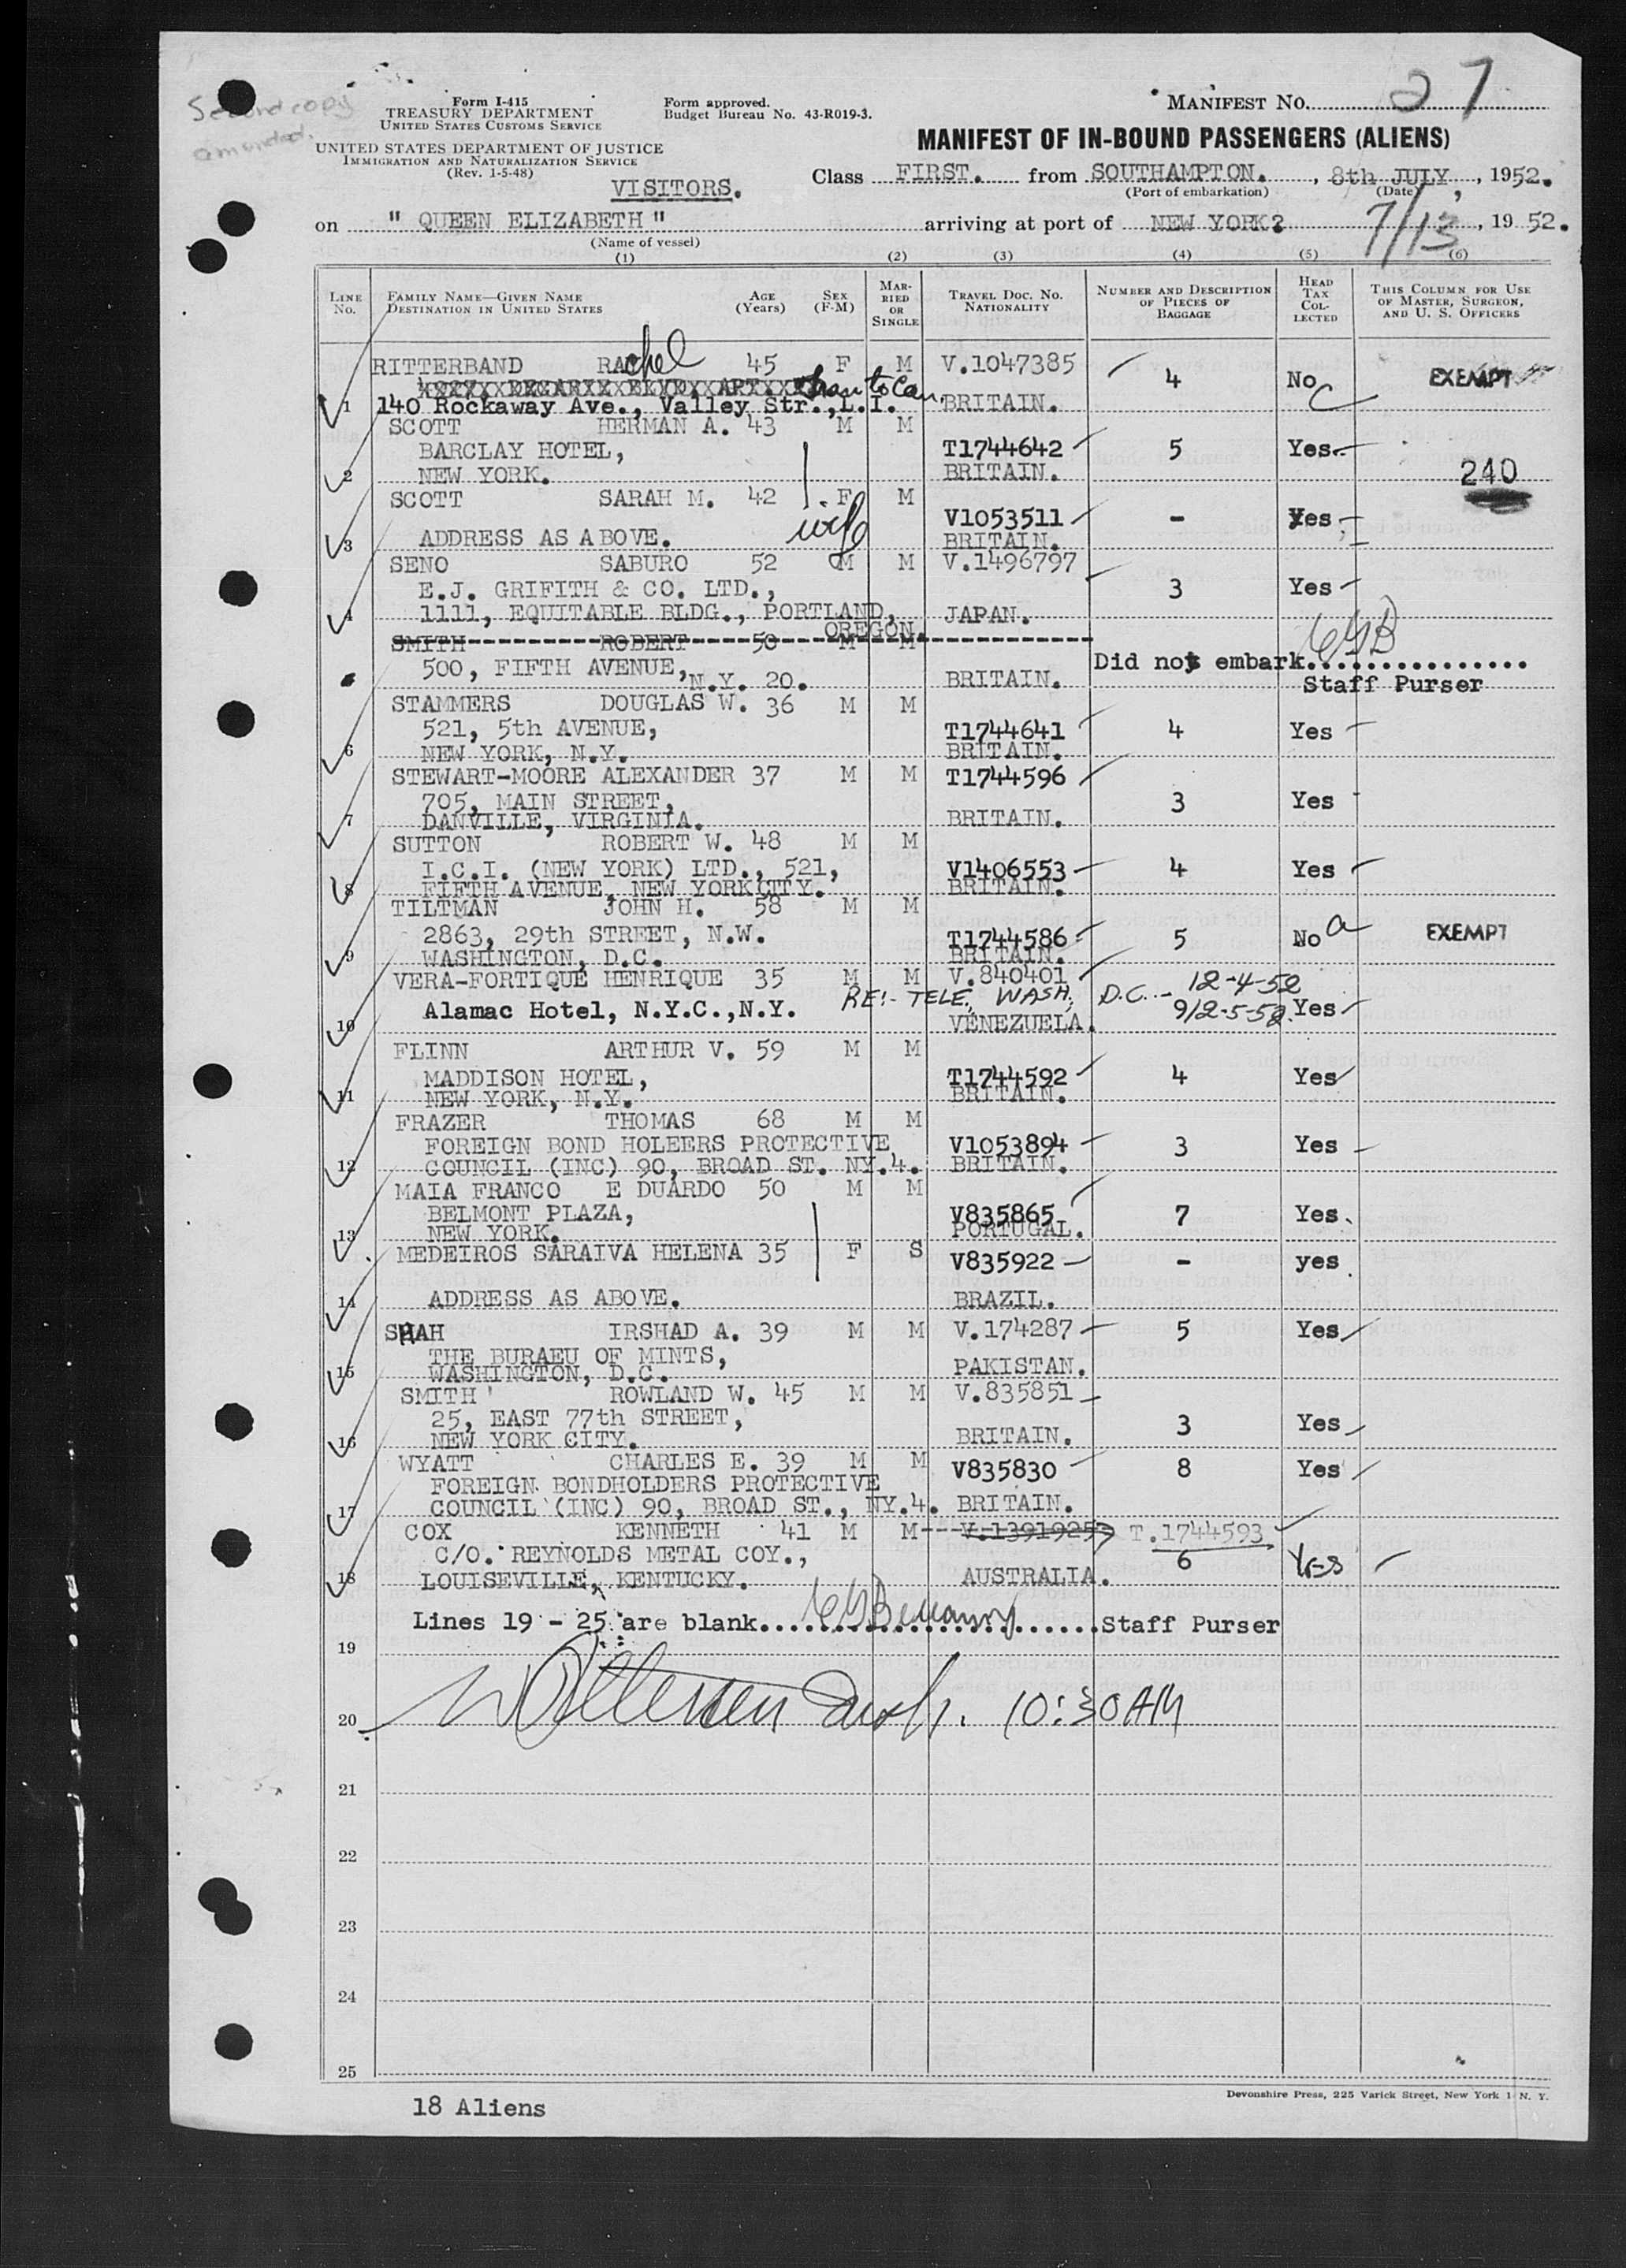 Second copy
amended.
Form I-415
TREASURY DEPARTMENT
UNITED STATES CUSTOMS SERVICE
UNITED STATES DEPARTMENT OF JUSTICE
IMMIGRATION AND NATURALIZATION SERVICE
(Rev. 1-5-48)
Form approved.
Budget Bureau No. 43-R019-3.
MANIFEST NO. 27
MANIFEST OF IN-BOUND PASSENGERS (ALIENS)
VISITORS.
Class FIRST. from SOUTHAMPTON. , 8th JULY, , 1952.
(Port of embarkation) (Date)
on " QUEEN ELIZABETH " arriving at port of NEW YORK? 7/13, 19 52.
(Name of vessel)
(1) (2) (3) (4) (5) (6)
LINE NO. FAMILY NAME—GIVEN NAME DESTINATION IN UNITED STATES AGE (Years) SEX (F-M) MARRIED OR SINGLE TRAVEL DOC. NO. NATIONALITY NUMBER AND DESCRIPTION OF PIECES OF BAGGAGE HEAD TAX COLLECTED THIS COLUMN FOR USE OF MASTER, SURGEON, AND U. S. OFFICERS
RITTERBAND RAchel 45 F M V.1047385 4 No EXEMPT
tran to Can. C
1 140 Rockaway Ave., Valley Str.,L.I. BRITAIN.
SCOTT HERMAN A. 43 M M
BARCLAY HOTEL, T1744642 5 Yes
2 NEW YORK. BRITAIN. 240
SCOTT SARAH M. 42 F M
wife V1053511 - Yes
3 ADDRESS AS ABOVE. BRITAIN.
SENO SABURO 52 M M V.1496797
E.J. GRIFITH & CO. LTD., 3 Yes
4 1111, EQUITABLE BLDG., PORTLAND, JAPAN.
OREGON.
SMITH ROBERT 50 M M
500, FIFTH AVENUE, Did not embark...............
N.Y. 20. BRITAIN. Staff Purser
STAMMERS DOUGLAS W. 36 M M
521, 5th AVENUE, T1744641 4 Yes
6 NEW YORK, N.Y. BRITAIN.
STEWART-MOORE ALEXANDER 37 M M T1744596
705, MAIN STREET, 3 Yes
7 DANVILLE, VIRGINIA. BRITAIN.
SUTTON ROBERT W. 48 M M
I.C.I. (NEW YORK) LTD., 521, V1406553 4 Yes
8 FIFTH AVENUE, NEW YORK CITY. BRITAIN.
TILTMAN JOHN H. 58 M M
2863, 29th STREET, N.W. T1744586 5 No a EXEMPT
9 WASHINGTON, D.C. BRITAIN.
VERA-FORTIQUE HENRIQUE 35 M M V.840401
RE:- TELE. WASH. D.C. 12-4-52
Alamac Hotel, N.Y.C.,N.Y. 9/2-5-52 Yes
10 VENEZUELA.
FLINN ARTHUR V. 59 M M
MADDISON HOTEL, T1744592 4 Yes
11 NEW YORK, N.Y. BRITAIN.
FRAZER THOMAS 68 M M
FOREIGN BOND HOLEERS PROTECTIVE V1053894 3 Yes
12 COUNCIL (INC) 90, BROAD ST. NY.4. BRITAIN.
MAIA FRANCO E DUARDO 50 M M
BELMONT PLAZA, V835865 7 Yes
13 NEW YORK. PORTUGAL.
MEDEIROS SARAIVA HELENA 35 F S V835922 - yes
14 ADDRESS AS ABOVE. BRAZIL.
SHAH IRSHAD A. 39 M M V.174287 5 Yes
THE BURAEU OF MINTS,
15 WASHINGTON, D.C. PAKISTAN.
SMITH ROWLAND W. 45 M M V.835851
25, EAST 77th STREET, 3 Yes
16 NEW YORK CITY. BRITAIN.
WYATT CHARLES E. 39 M M V835830 8 Yes
FOREIGN BONDHOLDERS PROTECTIVE
17 COUNCIL (INC) 90, BROAD ST., NY.4. BRITAIN.
COX KENNETH 41 M M V.1391925 T.1744593
C/O. REYNOLDS METAL COY., 6 Yes
18 LOUISEVILLE, KENTUCKY. AUSTRALIA.
Lines 19 - 25 are blank..........................Staff Purser
19
20 10:30AM
21
22
23
24
25
Devonshire Press, 225 Varick Street, New York 1 N. Y.
18 Aliens